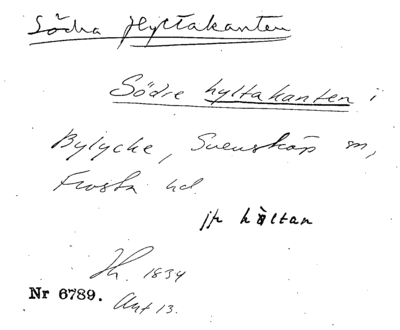 Södra Hyltakanten
Södre hyltakanten i
Bylycke, Svensköp sn,
Frosta hd.
jfr höltan
Hh. 1834
Nr 6789. Akt 13.